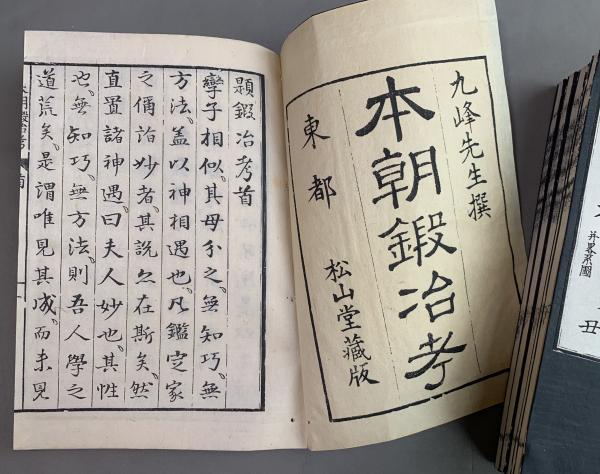 九峰先生撰
本朝鍛冶考
東都 松山堂藏版
題鍛冶考首
孿子相似。其母分之。無知巧。無
方法。蓋以神相遇也。凡鑑定家
之偁詣妙者。其說亦在斯矣。然
直置諸神遇。曰夫人妙也。其性
也。無知巧。無方法。則吾人學之
道荒矣。是謂唯見其成。而未見
本朝鍛冶考 首
并畧系圖
丑